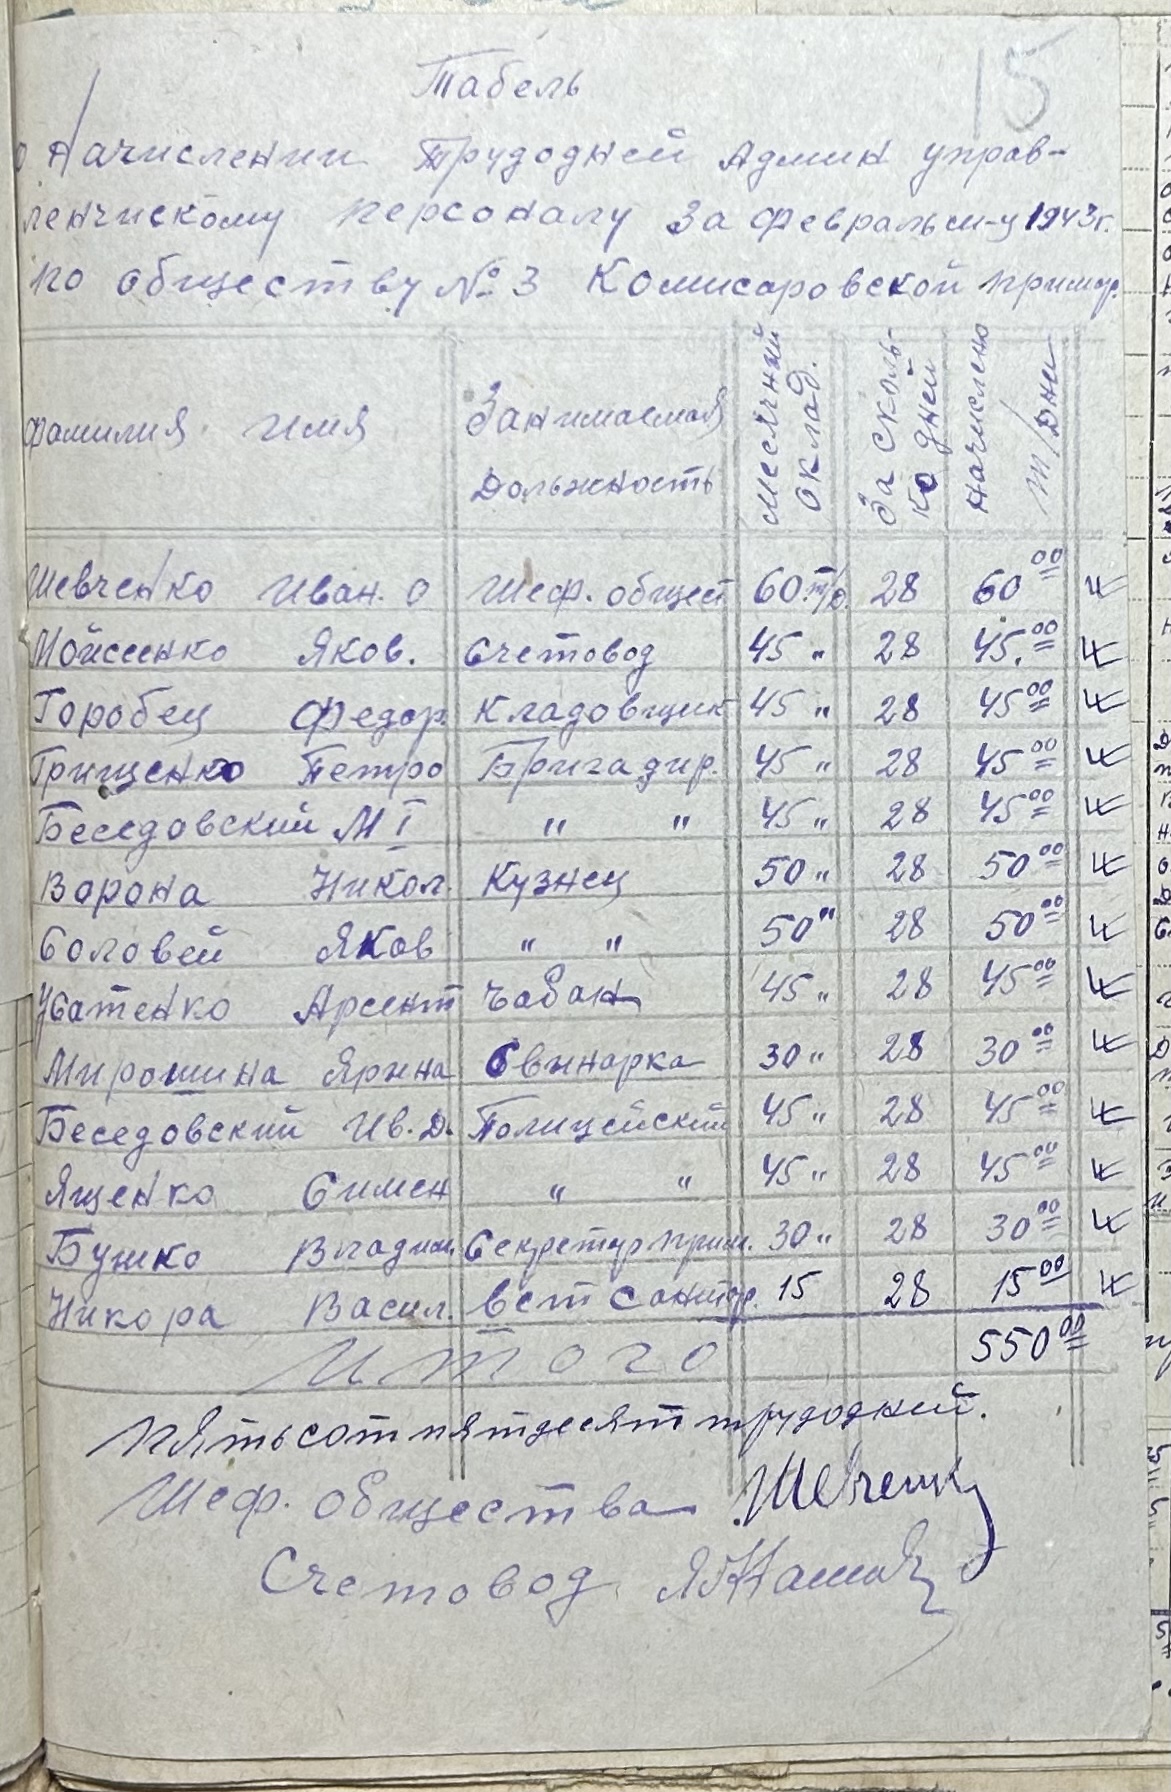 15
Табель
о начислении Трудодней Админ управ-
ленчискому персоналу за февраль м-ц 1943г.
по обществу № 3 Комисаровской примар.
фамилия имя Занимаемая Должность Месячный оклад. За сколь-ко дней Начислено т/дни
Шевченко Иван. О Шеф. общест 60 т/д. 28 60 00 
Мойсеенко Яков. Счетовод 45 " 28 45. 00
Горобец Федор. Кладовщик 45 " 28 45 00
Грищенко Петро Бригадир. 45 " 28 45 00
Беседовский М I " " 45 " 28 45 00
Ворона Никол. Кузнец 50 " 28 50 00
Соловей Яков " " 50 " 28 50 00
Усатенко Арсент Чабан 45 " 28 45 00
Мирошина Ярина Свинарка 30 " 28 30 00
Беседовский Ив. Д. Полицейский 45 " 28 45 00
Ященко Симен " " 45 " 28 45 00
Бушко Владим. Секретар прим. 30 " 28 30 00
Никора Васил. вет санитар. 15 28 15 00
Итого 550 00
пятьсот пятдесят трудодней.
Шеф. общества Шевченко
Счетовод